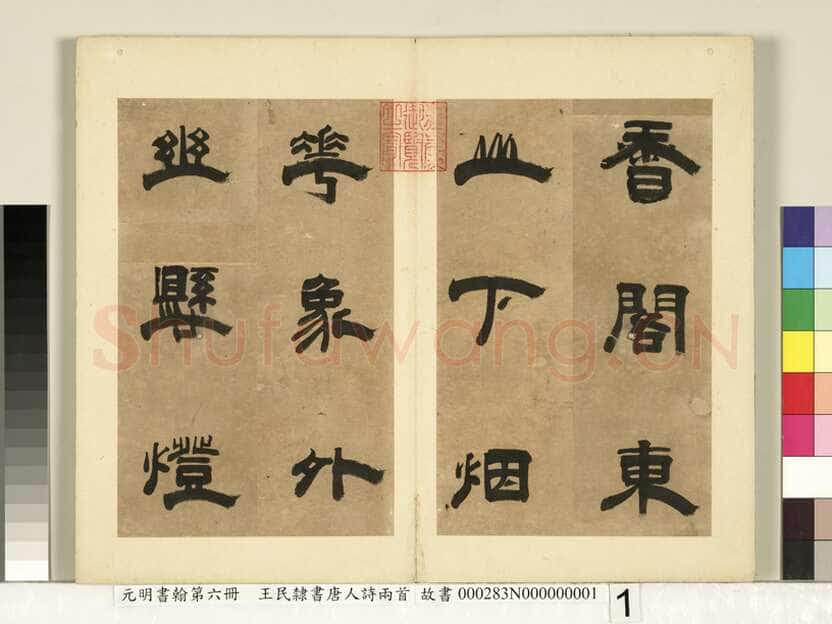 香閣東
山下烟
花象外
幽懸燈
御覽
之寶
Shufawang.CN
元明書翰第六冊 王民隸書唐人詩兩首 故書 000283N000000001
1